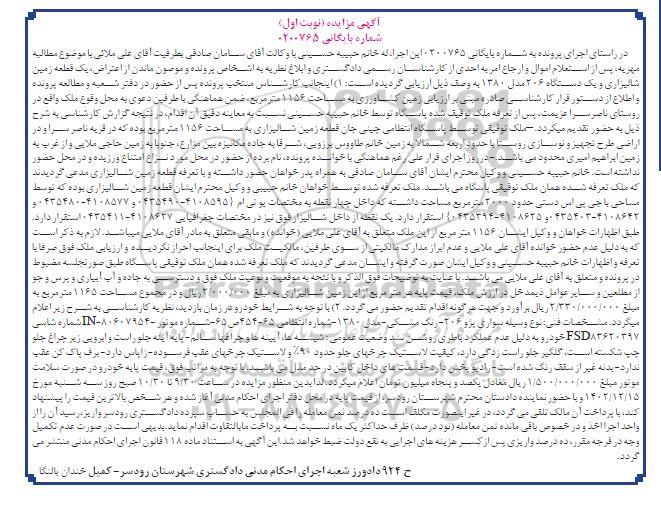 آگهی مزایده (نوبت اول)
شماره بایگانی ۰۲۰۰۷۶۵
در راستای اجرای پرونده به شماره بایگانی ۰۲۰۰۷۶۵ این اجرا، له خانم حبیبه حسینی با وکالت آقای سامان صادقی بطرفیت آقای علی ملائی با موضوع مطالبه
مهریه، پس از استعلام اموال و ارجاع امر به احدی از کارشناسان رسمی دادگستری و ابلاغ نظریه به اشخاص پرونده و موصون ماندن از اعتراض، یک قطعه زمین
شالیزاری و یک دستگاه ۲۰۶ مدل ۱۳۸۰ به وصف ذیل ارزیابی گردیده است: ۱) اینجانب کارشناس منتخب پرونده پس از حضور در دفتر شعبه و مطالعه پرونده
و اطلاع از دستور قرار کارشناسی صادره مبنی بر ارزیابی زمین کشاورزی به مساحت ۱۱۵۶ مترمربع، ضمن هماهنگی با طرفین دعوی به محل وقوع ملک واقع در
روستای ناصرسرا عزیمت، پس از تعرفه ملک توقیف شده باسگاه توسط خانم حبیبه حسینی نسبت به معاینه دقیق آن اقدام، در نتیجه گزارش کارشناسی به شرح
ذیل به حضور تقدیم میگردد. -ملک توقیفی توسط باسگاه انتظامی چینی جان قطعه زمین شالیزاری به مساحت ۱۱۵۶ مترمربع بوده که در قریه ناصر سرا و در
اراضی طرح تجهیز و نوسازی روستا با حدود اربعه شمالا به زمین خانم طاووس برزویی، شرقا به جاده مکانیزه بین مزارع، جنوبا به زمین حاجی ملایی و از غرب به
زمین ابراهیم امیری محدود می باشد. - در روز اجرای قرار علی رغم هماهنگی با خوانده پرونده، نام برده از حضور در محل مورد نزاع امتناع ورزیده و در محل حضور
نداشته است. خانم حبیبه حسینی و وکیل محترم ایشان آقای سامان صادقی به همراه پدر خواهان حضور داشته و با تعرفه قطعه زمین شالیزاری مدعی گردیدند
که ملک تعرفه شده همان ملک توقیفی باسگاه می باشد. ملک تعرفه شده توسط خواهان خانم حبیبی و وکیل محترم ایشان قطعه زمین شالیزاری بوده که توسط
طبق اظهارات خواهان و وکیل ایشان ۱۱۵۶ متر مربع از این ملک متعلق به آقای علی ملایی (خوانده) و مابقی متعلق به مادر آقای ملایی میباشد. لازم به ذکر است
که به دلیل عدم حضور خوانده آقای علی ملایی و عدم ابراز مدارک مالکیتی از سوی طرفین، مالکیت ملک برای اینجانب احراز نگردیده و ارزیابی ملک فوق صرفا با
تعرفه و اظهارات خانم حبیبه حسینی و وکیل ایشان صورت گرفته و ایشان مدعی گردیدند که ملک تعرفه شده همان ملک توقیفی باسگاه طبق صورتجلسه مضبوط
در پرونده و متعلق به آقای علی ملایی می باشد. با عنایت به توضیحات فوق الذکر و با توجه به موقعیت و نوعیت ملک فوق و دسترسی به جاده و آب آبیاری و پرس و جو
از مطلعین و سایر عوامل ذیمدخل در ارزش ملک، قیمت پایه هر متر مربع از این زمین شالیزاری به مبلغ ۲/۰۰۰/۰۰۰ ریال و در مجموع مساحت ۱۱۶۵ مترمربع به
مبلغ ۲/۳۳۰/۰۰۰/۰۰۰ ریال برآورد و جهت هرگونه اقدام تقدیم حضور می گردد. ۲) با توجه به شرایط خودرو در زمان بازدید، نظریه کارشناسی به شرح زیر اعلام
میگردد. مشخصات فنی: نوع وسیله سواری پژو ۲۰۶- رنگ مشکی- مدل ۱۳۸۰- شماره انتظامی ۶۵-۴۵۴ص۶۵- شماره موتور IN-۸۰۶۰۷۹۵۴ شماره شاسی
FSD۸۳۶۲۰۳۹۷ خودرو به دلیل عدم عملکرد باطری روشن نشد وضعیت عمومی، شیشه ها، آیینه ها و چراغها سالم- پایه آینه جلو راست و ابرویی زیر چراغ جلو
چپ شکسته است، گلگیر جلو راست زدگی دارد، کیفیت لاستیک چرخهای جلو حدود ۹۰٪ و لاستیک چرخهای عقب فرسوده- زاپاس دارد- برف پاک کن عقب
ندارد- بدنه غیر از سقف رنگ شده است- رادیو پخش دارد- قسمت های داخل کابین در حد مدل می باشد. با توجه به مراتب فوق، قیمت پایه خودرو در صورت سلامت
موتور مبلغ ۱/۵۰۰/۰۰۰/۰۰۰ ریال معادل یکصد و پنجاه میلیون تومان اعلام میگردد. لذا بدین منظور مزایده در ساعت ۹/۳۰ تا ۱۰/۳۰ صبح روز سه شنبه مورخ
۱۴۰۲/۱۲/۱۵ و با حضور نماینده دادستان محترم شهرستان رودسر، از قیمت پایه در محل دفتر اجرای احکام مدنی آغاز شده و هر شخص بالاترین قیمت را پیشنهاد
کند، با پرداخت آن مالک تلقی می گردد، در غیر اینصورت مکلف است ده درصد ثمن معامله را فی المجلس به حساب سپرده دادگستری رودسر واریز، رسید آن را از
واحد اجرا اخذ و در خصوص باقی مانده ثمن معامله (نود درصد) ظرف حداکثر یک ماه نسبت به پرداخت مابالتفاوت اقدام نماید. بدیهی است در صورت عدم تکمیل
وجه در فرجه مقرر، ده درصد واریزی پس از کسر هزینه های اجرایی به نفع دولت ضبط خواهد شد. این آگهی به استناد ماده ۱۱۸ قانون اجرای احکام مدنی منتشر می
گردد.
ح ۹۲۴ دادورز شعبه اجرای احکام مدنی دادگستری شهرستان رودسر- کمیل خندان بالنگا